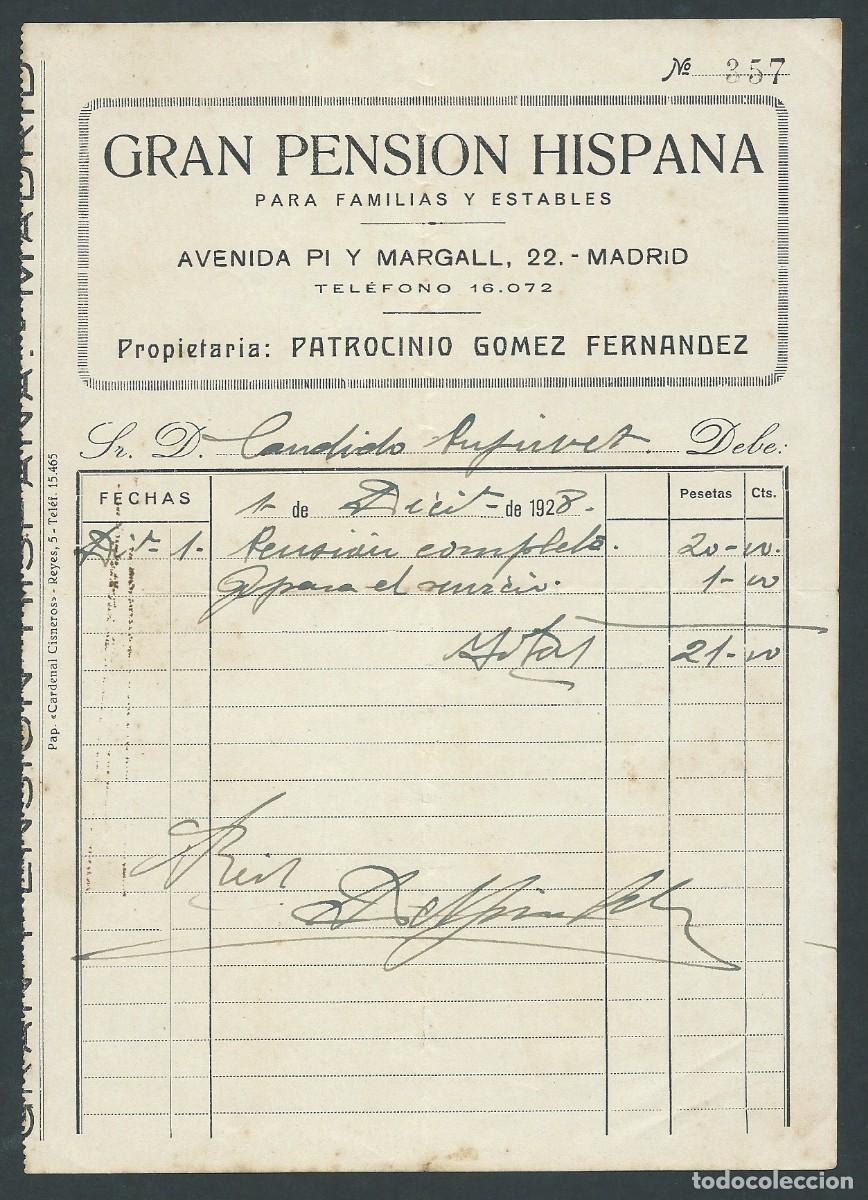 Nº 357
GRAN PENSION HISPANA
PARA FAMILIAS Y ESTABLES
AVENIDA PI Y MARGALL, 22.- MADRID
TELÉFONO 16.072
Propietaria: PATROCINIO GOMEZ FERNANDEZ
Sr. D. Candido Debe:
FECHAS 1 de Dici- de 1928. Pesetas Cts.
1- Pensión completa. 20-00.
para el servicio. 1-00
Total 21-00
GRAN PENSION HISPANA.-MADRID
Pap. «Cardenal Cisneros» - Reyes, 5 - Teléf. 15.465
todocoleccion